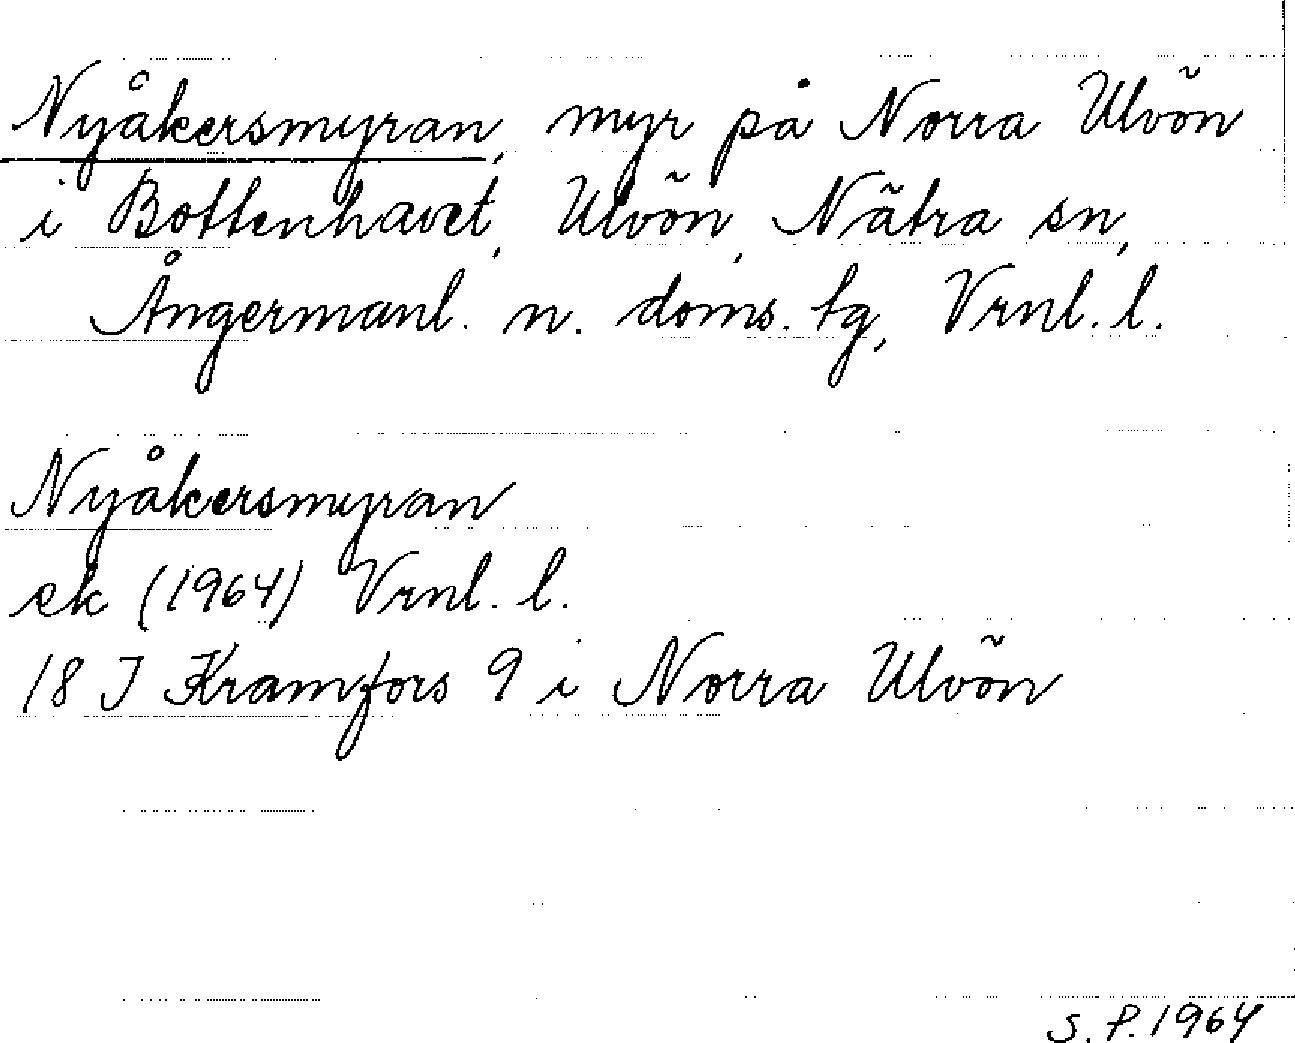 Nyåkersmyran, myr på Norra Ulvön
i Bottenhavet, Ulvön, Nätra sn,
Ångermanl. n. doms. tg, Vrnl. l.
Nyåkersmyran
ek (1964) Vrnl. l.
18 J Kramfors 9 i Norra Ulvön
S. P. 1964